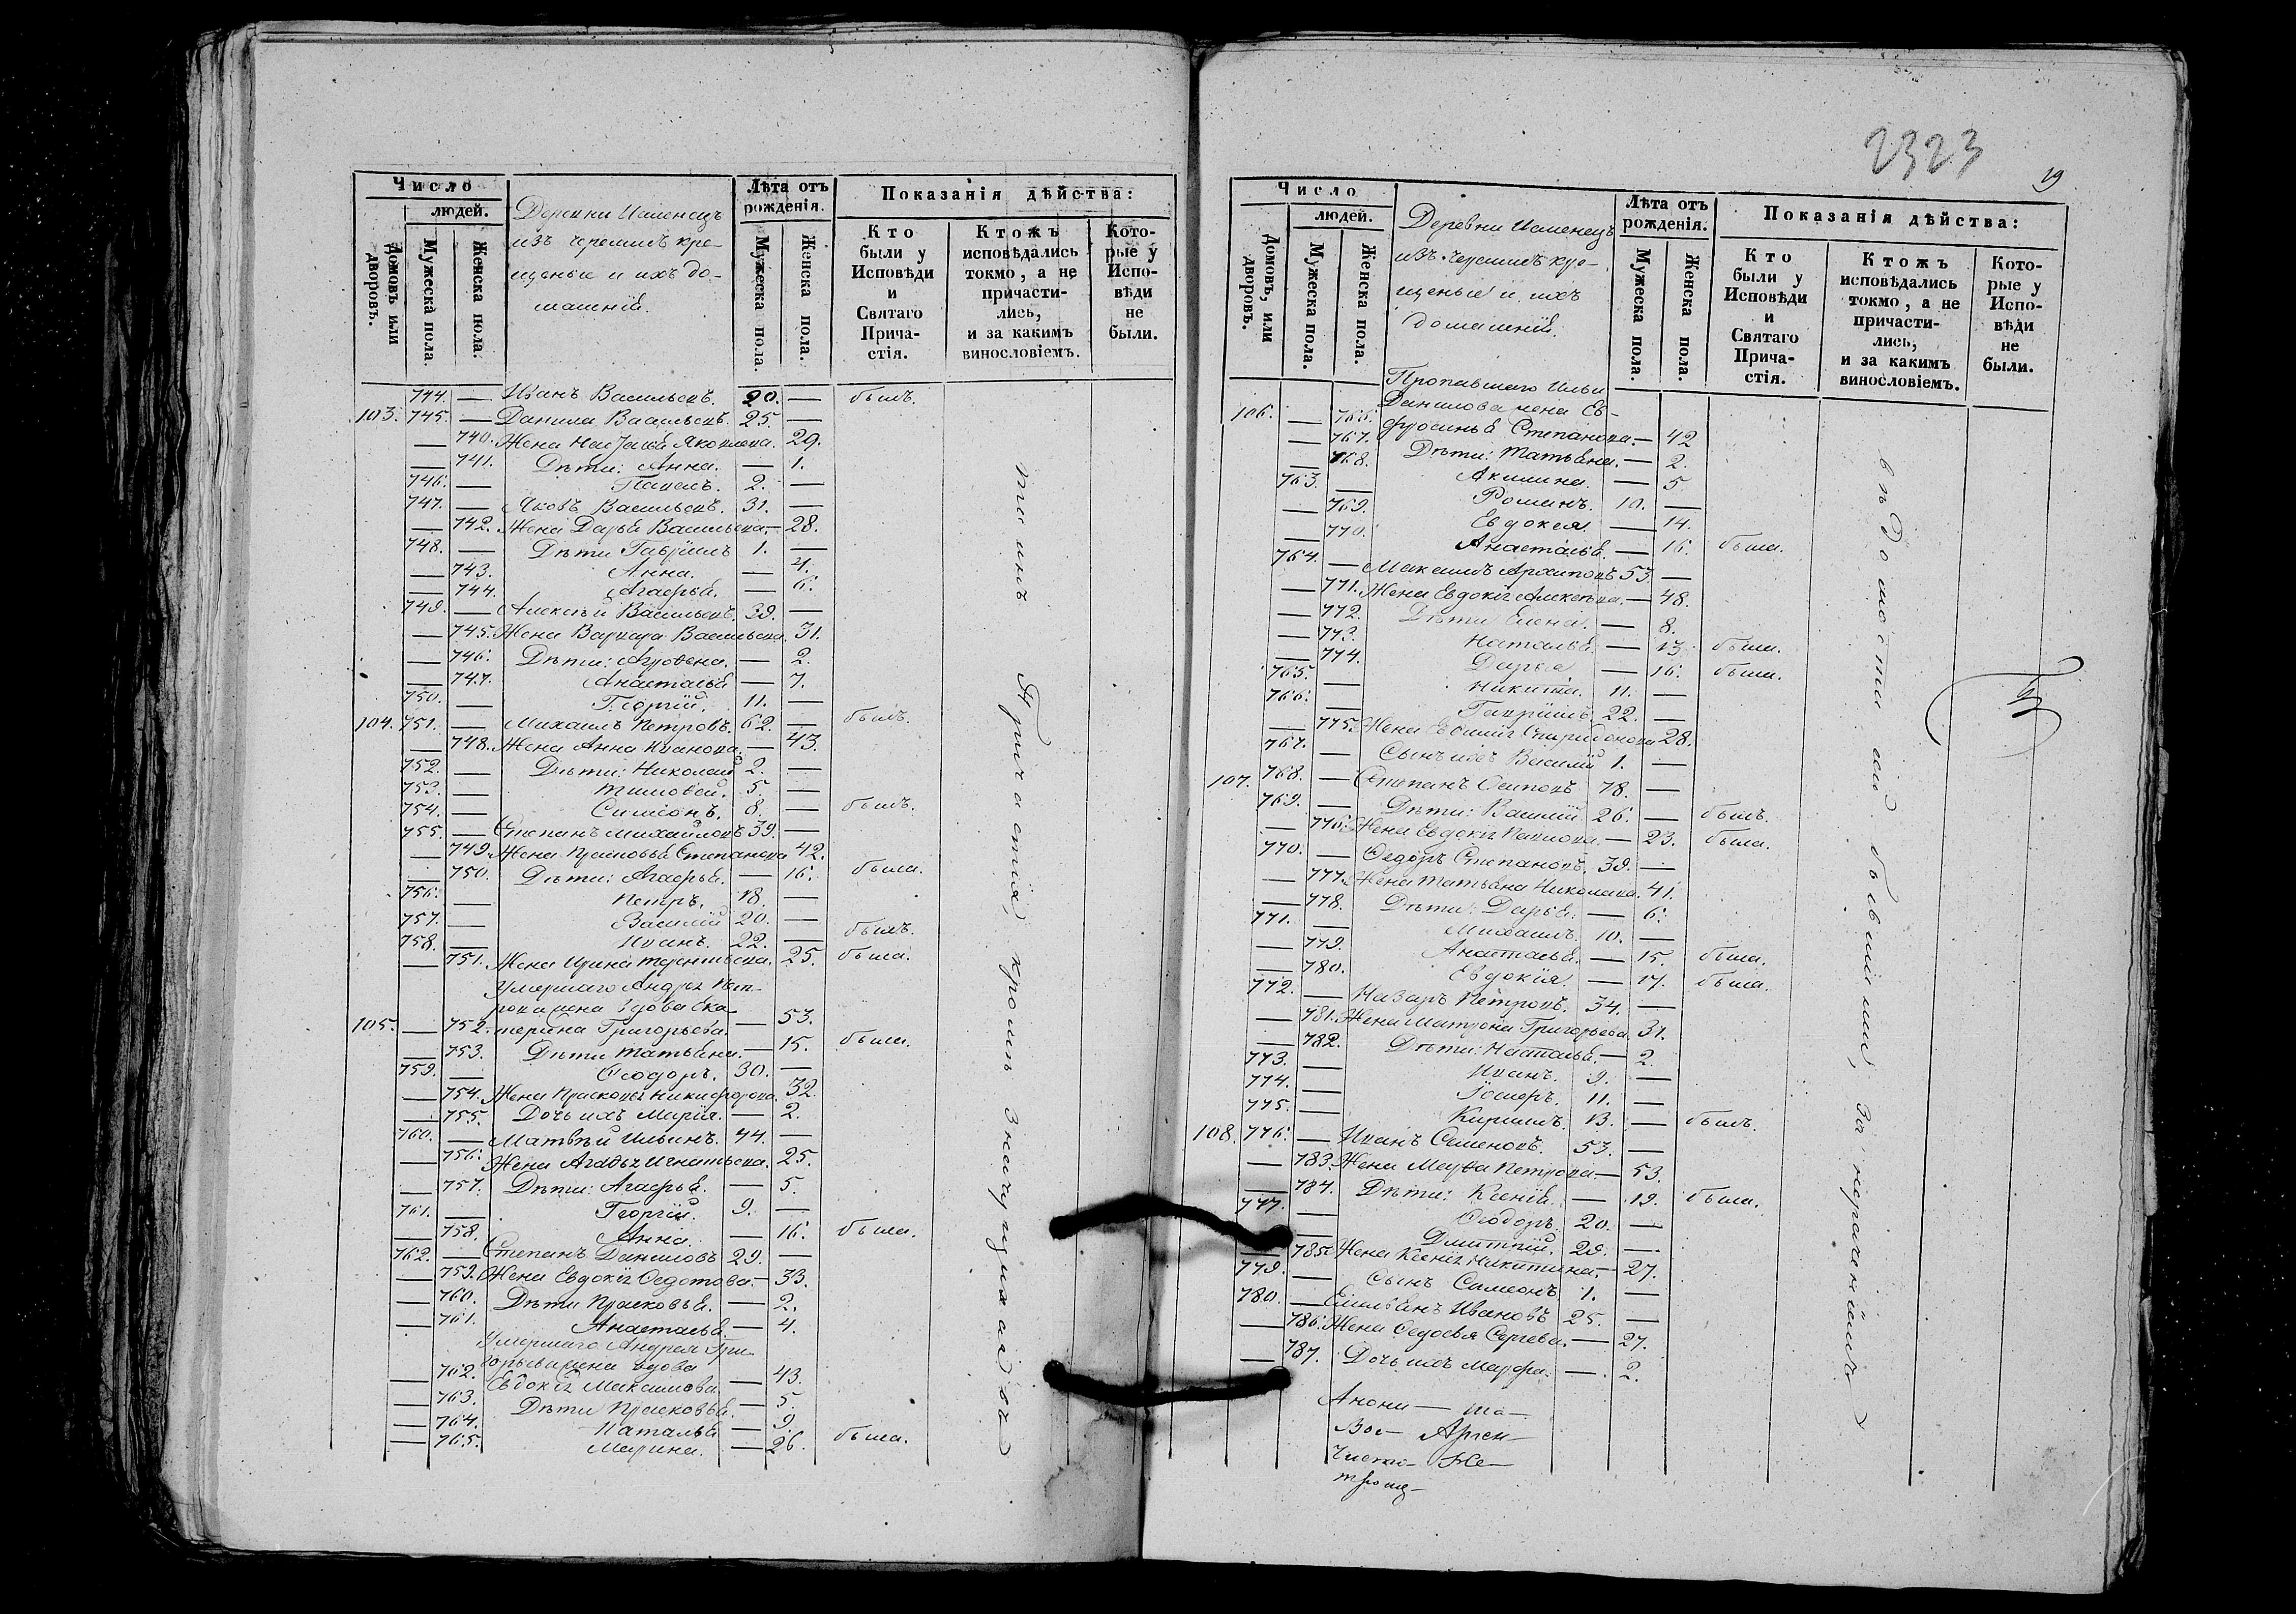 Число
людей.
Домовъ или дворовъ.
Мужеска пола
Женска пола.
Деревни Исменецъ
изъ черемисъ кре-
щеные и ихъ до-
машнiе.
Лѣта отъ рожденія.
Мужеска пола.
Женска пола.
Показанія дѣйства:
Кто были у Исповѣди и Святаго Прича-стія.
Ктожъ исповѣдались токмо, а не причасти-лись, и за какимъ винословіемъ.
Кото-рые у Испо-вѣди не были.
744. — Иванъ Васильевъ. 20. — былъ.
103. 745. — Данила Васильевъ. 25. —
— 740. Жена Яковлева. 29.
— 741. Дѣти: Анна. — 1.
746. — Павелъ. 2. —
747. — Яковъ Васильевъ. 31. —
— 742. Жена Дарья Васильева. — 28.
748. — Дѣти Гаврiилъ 1. —
— 743. Анна. — 4.
— 744. Агафья. — 6.
749. — Алексѣй Васильевъ. 39. —
— 745. Жена Варвара Васильева. 31.
— 746. Дѣти: — 2.
— 747. Анастасья — 7.
750. — Георгій. 11. —
104. 751. — Михаилъ Петровъ. 62. — былъ.
— 748. Жена Анна Иванова. — 43.
752. — Дѣти: Николай 2. —
753. — Тимофей. 5. —
754. — Симіонъ. 8. — былъ.
755. — Степанъ Михайловъ 39. —
— 749. Жена Прасковья Степанова 42.
— 750. Дѣти: Агафья. — 16. была.
756. — Петръ. 18. —
757. — Василій 20. —
758. — Иванъ. 22. — былъ.
— 751. Жена Ирина 25. была.
Умершаго Андрея Пет-
рова жена вдова Ека-
105. — 752. терина Григорьева. — 53.
— 753. Дѣти Татьяна. — 15. была.
759. — Ѳеодоръ. 30. —
— 754. Жена Прасковья Никифорова. 32.
— 755. Дочь ихъ Марія. — 2.
760. — Матвѣй Ильинъ. 44. —
— 756. Жена Игнатьева. 25.
— 757. Дѣти: Агафья. — 5.
761. — Георгій. 9. —
— 758. Анна. — 16. была.
762. — Степанъ Даниловъ 29. —
— 759. Жена Евдокія Ѳедотова. — 33.
— 760. Дѣти Прасковья. — 2.
— 761. Анастасья. — 4.
Умершаго Андрея Гри-
горьева жена вдова
— 762. Евдокія Максимова. — 43.
— 763. Дѣти Прасковья. — 5.
— 764. Наталья — 9.
— 765. Марина. — 26. была.
Причастія, кромѣ значущихся въ
2323
19
Число
людей.
Домовъ, или дворовъ.
Мужеска пола.
Женска пола.
Деревни Исменецъ
изъ черемисъ кре-
щеные и ихъ
домашнiе.
Лѣта отъ рожденія.
Мужеска пола.
Женска пола.
Показанія дѣйства:
Кто были у Исповѣди и Святаго Прича-стія.
Ктожъ исповѣдались токмо, а не причасти-лись, и за какимъ винословіемъ.
Кото-рые у Испо-вѣди не были.
Пропавшаго Ильи
Данилова жена Ев-
106. — 766. фросинья Степанова. — 42
— 767. Дѣти: Татьяна. — 2.
— 768. Акилина. — 5
763. — Романъ. 10. —
— 769. Евдокея. — 14.
— 770. Анастасья — 16. была.
764. — Максимъ Архиповъ 53. —
— 771. Жена Евдокія Алексѣева. — 48.
— 772. Дѣти Елена. — 8.
— 773. Наталья. — 13. была.
— 774. Дарья — 16. была.
765. — Никита. 11. —
766. — Гавріилъ. 22. —
— 775. Жена Спиридонова 28.
767. — Сынъ ихъ Василій 1. —
107. 768. — Степанъ Осиповъ 78. —
769. — Дѣти: Василій 26. — былъ.
— 776. Жена Евдокія Павлова. — 23. была.
770. — Ѳедоръ Степановъ. 39. —
— 777. Жена Татьяна Николаева. 41.
— 778. Дѣти: Дарья. — 6.
771. — Михаилъ. 10. —
— 779. Анастасья. — 15. была.
— 780. Евдокія. — 17. была.
772. — Назаръ Петровъ. 34. —
— 781. Жена Матрона Григорьева. 31.
— 782. Дѣти: Наталья. — 2.
773. — Иванъ. 9. —
774. — 11. —
775. — Кириллъ. 13. — былъ.
108. 776. — Иванъ Семеновъ. 53. —
— 783. Жена Марѳа Петрова — 53.
— 784. Дѣти: Ксенія. — 19. была.
777. — Ѳеодоръ 20. —
— Дмитрій. 29. —
— 785. Жена Ксенія Никитина. — 27.
779. — Сынъ Симеонъ 1. —
780. — Емельянъ Ивановъ 25. —
— 786. Жена Ѳедосья Сергеева. — 27.
— 787. Дочь ихъ Марфа. — 2.
вѣдомости бывшими, за нераченіемъ